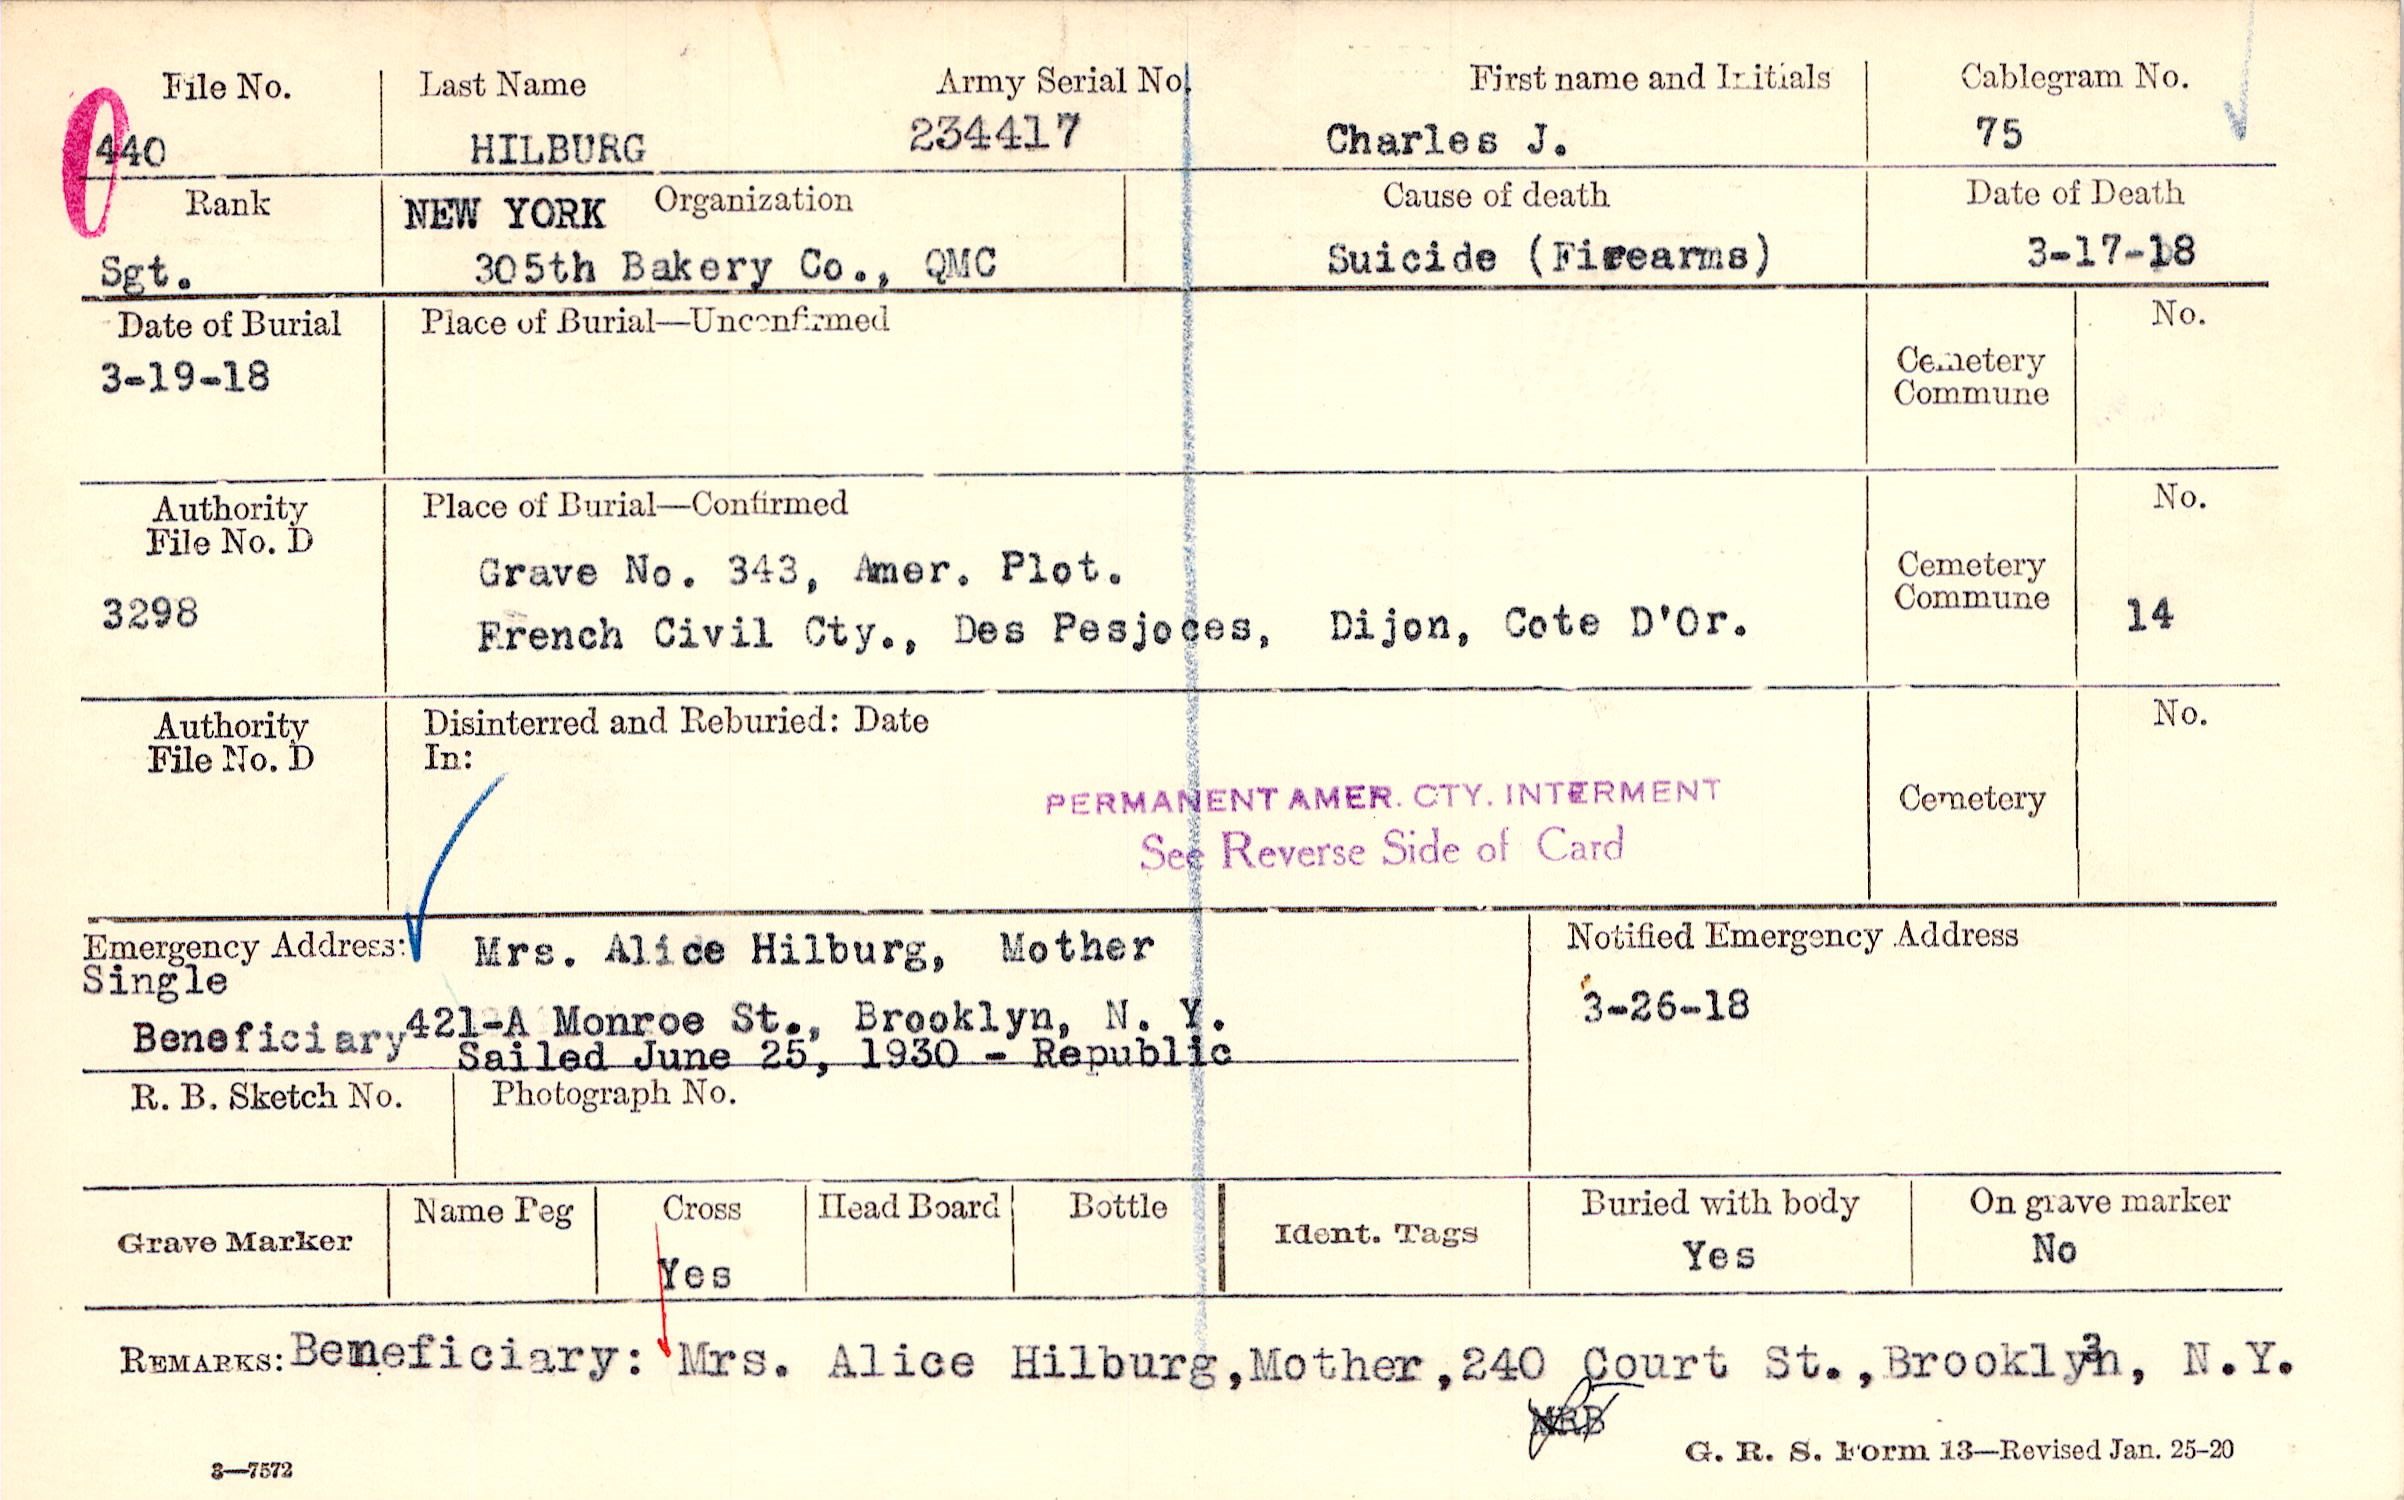 File No. Last Name Army Serial No. First name and Initials Cablegram No.
440 HILBURG 234417 Charles J. 75
Rank NEW YORK Organization Cause of death Date of Death
Sgt. 305th Bakery Co., QMC Suicide (Firearms) 3-17-18
Date of Burial Place of Burial—Unconfirmed No.
3-19-18 Cemetery
Commune
Authority Place of Burial—Confirmed No.
File No. D
Grave No. 343, Amer. Plot. Cemetery
3298 Commune 14
French Civil Cty., Des Pesjoces, Dijon, Cote D'Or.
Authority Disinterred and Reburied: Date No.
File No. D In:
PERMANENT AMER. CTY. INTERMENT Cemetery
See Reverse Side of Card
Emergency Address: Mrs. Alice Hilburg, Mother Notified Emergency Address
Single
3-26-18
Beneficiary 421-A Monroe St., Brooklyn, N. Y.
Sailed June 25, 1930 - Republic
R. B. Sketch No. Photograph No.
Grave Marker Name Peg Cross Head Board Bottle Ident. Tags Buried with body On grave marker
Yes Yes No
REMARKS: Beneficiary: Mrs. Alice Hilburg, Mother, 240 Court St., Brooklyn, N.Y.
MRB
3—7572 G. R. S. Form 13—Revised Jan. 25-20